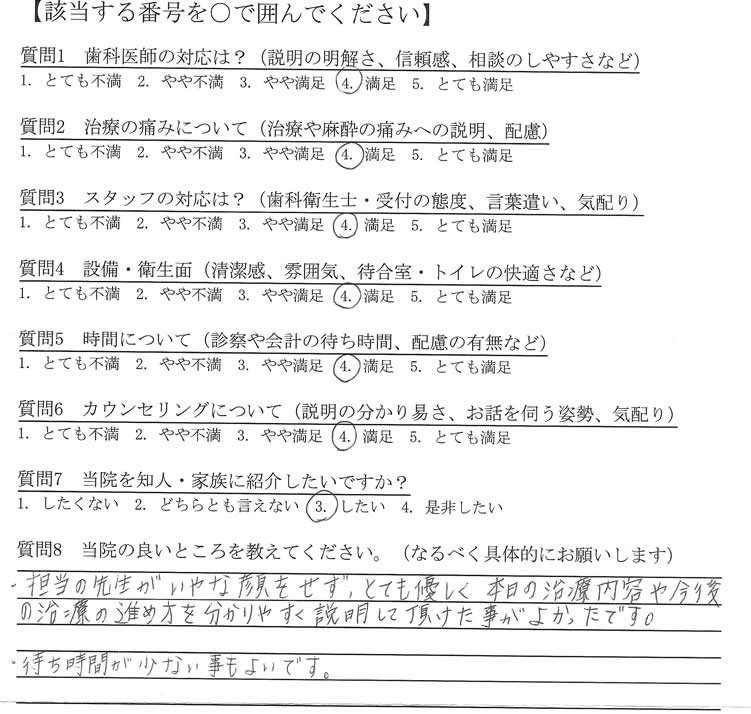 【該当する番号を○で囲んでください】
質問1 歯科医師の対応は？（説明の明解さ、信頼感、相談のしやすさなど）
1. とても不満 2. やや不満 3. やや満足 4. 満足 5. とても満足
質問2 治療の痛みについて（治療や麻酔の痛みへの説明、配慮）
1. とても不満 2. やや不満 3. やや満足 4. 満足 5. とても満足
質問3 スタッフの対応は？（歯科衛生士・受付の態度、言葉遣い、気配り）
1. とても不満 2. やや不満 3. やや満足 4. 満足 5. とても満足
質問4 設備・衛生面（清潔感、雰囲気、待合室・トイレの快適さなど）
1. とても不満 2. やや不満 3. やや満足 4. 満足 5. とても満足
質問5 時間について（診察や会計の待ち時間、配慮の有無など）
1. とても不満 2. やや不満 3. やや満足 4. 満足 5. とても満足
質問6 カウンセリングについて（説明の分かり易さ、お話を伺う姿勢、気配り）
1. とても不満 2. やや不満 3. やや満足 4. 満足 5. とても満足
質問7 当院を知人・家族に紹介したいですか？
1. したくない 2. どちらとも言えない 3. したい 4. 是非したい
質問8 当院の良いところを教えてください。（なるべく具体的にお願いします）
・担当の先生がいやな顔をせず、とても優しく本日の治療内容や今後
の治療の進め方を分かりやすく説明して頂けた事がよかったです。
・待ち時間が少ない事もよいです。